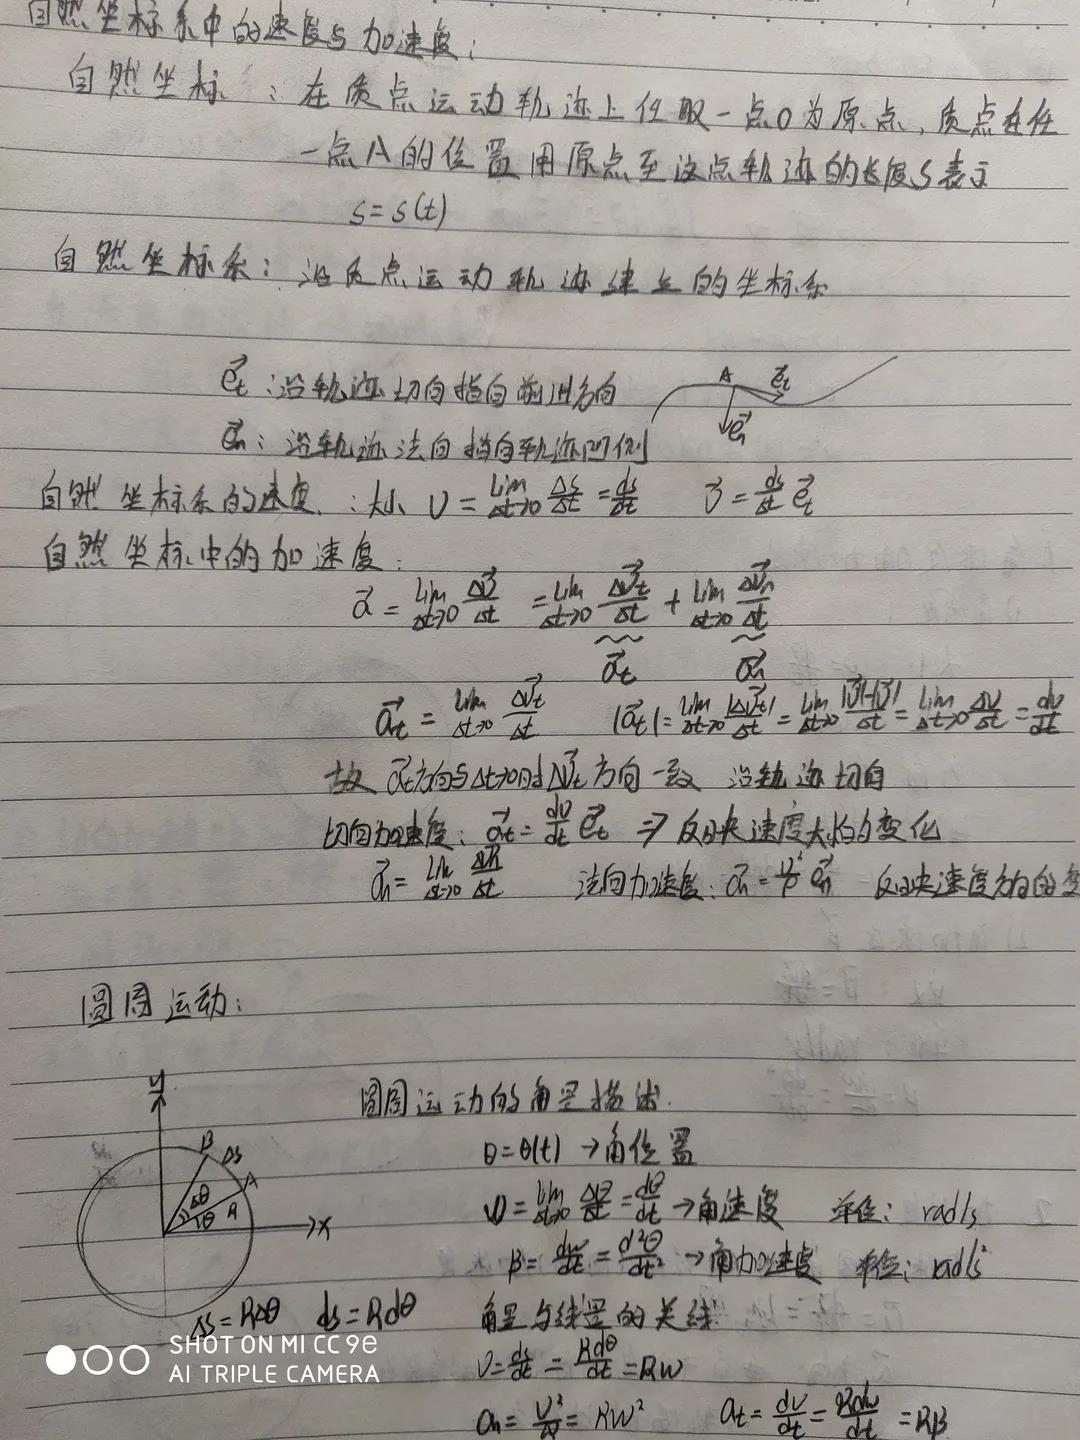 自然坐标系中的速度与加速度：
自然坐标：在质点运动轨迹上任取一点O为原点，质点在任
一点A的位置用原点至这点轨迹的长度S表示
s=s(t)
自然坐标系：沿质点运动轨迹建立的坐标系
e⃗t：沿轨迹切向指向前进方向
A e⃗t
e⃗n
e⃗n：沿轨迹法向指向轨迹凹侧
自然坐标系的速度：大小 v=lim Δt→0 Δs/Δt=ds/dt v⃗=ds/dt e⃗t
自然坐标中的加速度：
a⃗=lim Δt→0 Δv⃗/Δt =lim Δt→0 Δv⃗t/Δt + lim Δt→0 Δv⃗n/Δt
a⃗t a⃗n
a⃗t=lim Δt→0 Δv⃗t/Δt |a⃗t|=lim Δt→0 |Δv⃗t|/Δt=lim Δt→0 |v⃗|-|v⃗|/Δt=lim Δt→0 Δv/Δt=dv/dt
故a⃗t方向与Δt→0时Δv⃗t方向一致 沿轨迹切向
切向加速度：a⃗t=dv/dt e⃗t ⇒反映速度大小的变化
a⃗n=lim Δt→0 Δv⃗n/Δt 法向加速度：a⃗n=v²/ρ 反映速度方向的变
圆周运动：
y
圆周运动的角量描述
θ=θ(t)→角位置
B Δs
A
Δθ
θ R
x
ω=lim Δt→0 Δθ/Δt=dθ/dt→角速度 单位：rad/s
β=dω/dt=d²θ/dt²→角加速度 单位：rad/s²
Δs=RΔθ ds=Rdθ
角量与线量的关系
SHOT ON MI CC 9e
AI TRIPLE CAMERA
v=ds/dt=Rdθ/dt=Rω
an=v²/R=Rω² at=dv/dt=Rdω/dt=Rβ